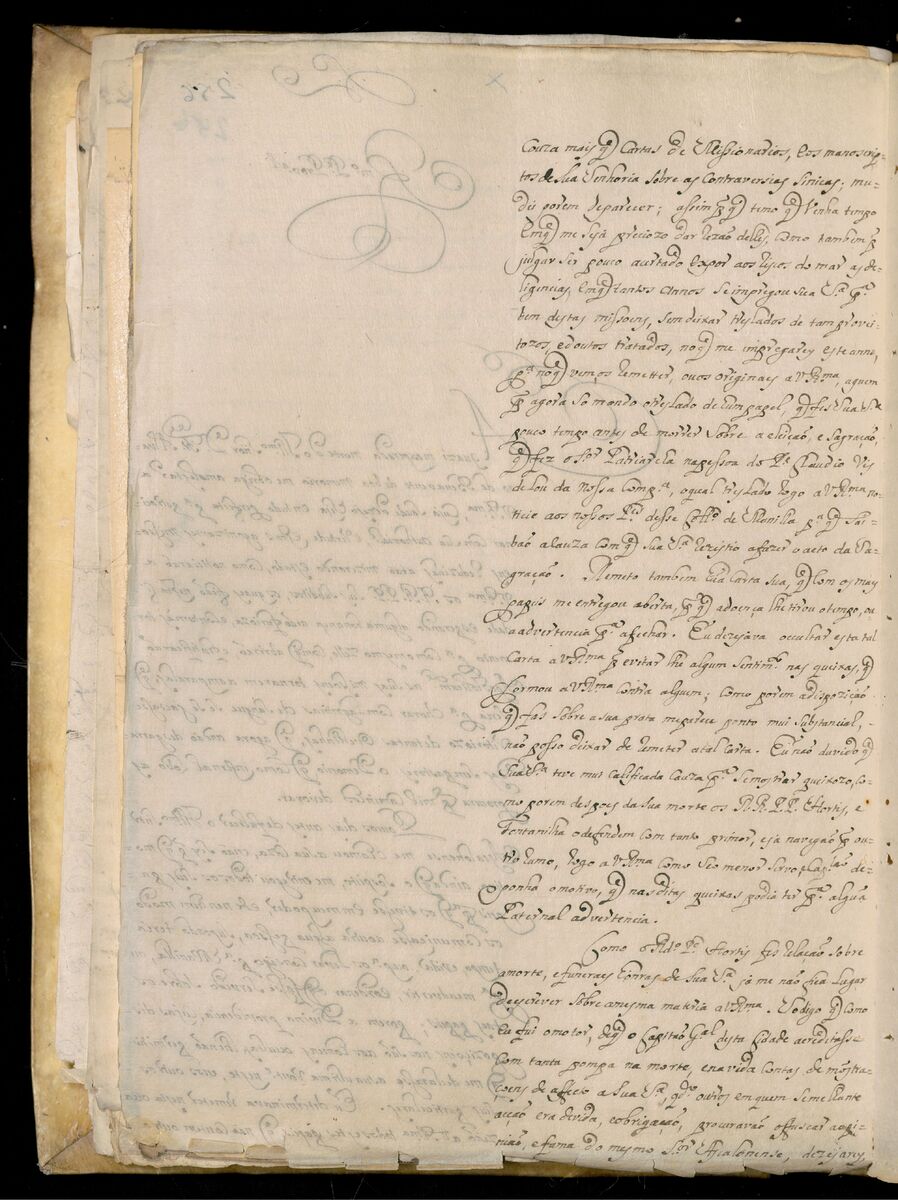 Couza mais q̃ Cartas de Missionarios, e os manoscrip-
tos de Sua Senhoria sobre as Contraversias Sinicas; mu-
dei porem de parecer; assim p̃ q̃ temo q̃ Venha tempo
Emq̃ me seja precizo dar rezaõ delles, Como tambem p̃
julgar ser pouco acertado expor aos riscos do mar as de-
ligencias, Emq̃ tantos annos se impregou sua S.ª p.ª
bem destas missoens, sem deixar treslados de tam provei-
tozos, e doutos tratados, no q̃ me impregarey este anno,
p.ª no q̃ vem, os remetter, ou os originaes a V Rma, aquem
p̃ agora só mando o treslado de hum papel, q̃ fes Sua S.ª
pouco tempo antes de morrer sobre a eleiçaõ, e sagraçaõ,
q̃ fez o Sor Patriarcha na pessoa do Pe. Claudio Vis
delou da nossa Comp.ª, o qual treslado rogo a V Rma no-
ticie aos nossos P.es desse Collo de Manilha p.ª q̃ sai-
baõ a Cauza Com q̃ sua S.ª rezistio a fazer o acto da Sa-
graçaõ. Remeto tambem hũa Carta sua, q̃ Com os mays
papeis me entregou aberta, p̃ q̃ a doença lhe tirou o tempo, ou
a advertencia p.ª a fechar. Eu dezejava occultar esta tal
Carta a V Rma p̃ evitar lhe algum sentimto nas queixas, q̃
formou a V Rma Contra alguem; Como porem a dispoziçaõ
q̃ fas sobre a sua prata me parece ponto mui substancial,
naõ posso deixar de remeter a tal Carta. Eu naõ duvido q̃
Sua S.ª teve mui calificada Cauza p.ª se mostrar queixozo, Co-
mo porem despoes da sua morte os R.R. P.P. Hortis, e
Fontanilha o defendem com tanto primor, e já navegaõ p̃ ou-
tro rumo, rogo a V Rma Como seo menor servo, e Caplaõ de-
ponha o motivo, q̃ nas ditas queixas podia ter p.ª algũa
Paternal advertencia.
Como o Rdo Pe Hortis fes relaçaõ sobre
a morte, e funeraes honras de Sua S.ª já me naõ fica lugar
de escrever sobre a mesma materia a V Rma. Só digo q̃ Como
Eu fui o motor, de q̃ o Capitaõ G.al desta Cidade acreditasse
Com tanta pompa na morte, e na vida Contas de mostra-
coens de affecto a Sua S.ª, qdo outros em quem semelhante
acçaõ era divida, e obrigaçaõ, procuravaõ offuscar a opi-
niaõ, e fama do mesmo S.or Ascalonense, dezejarey